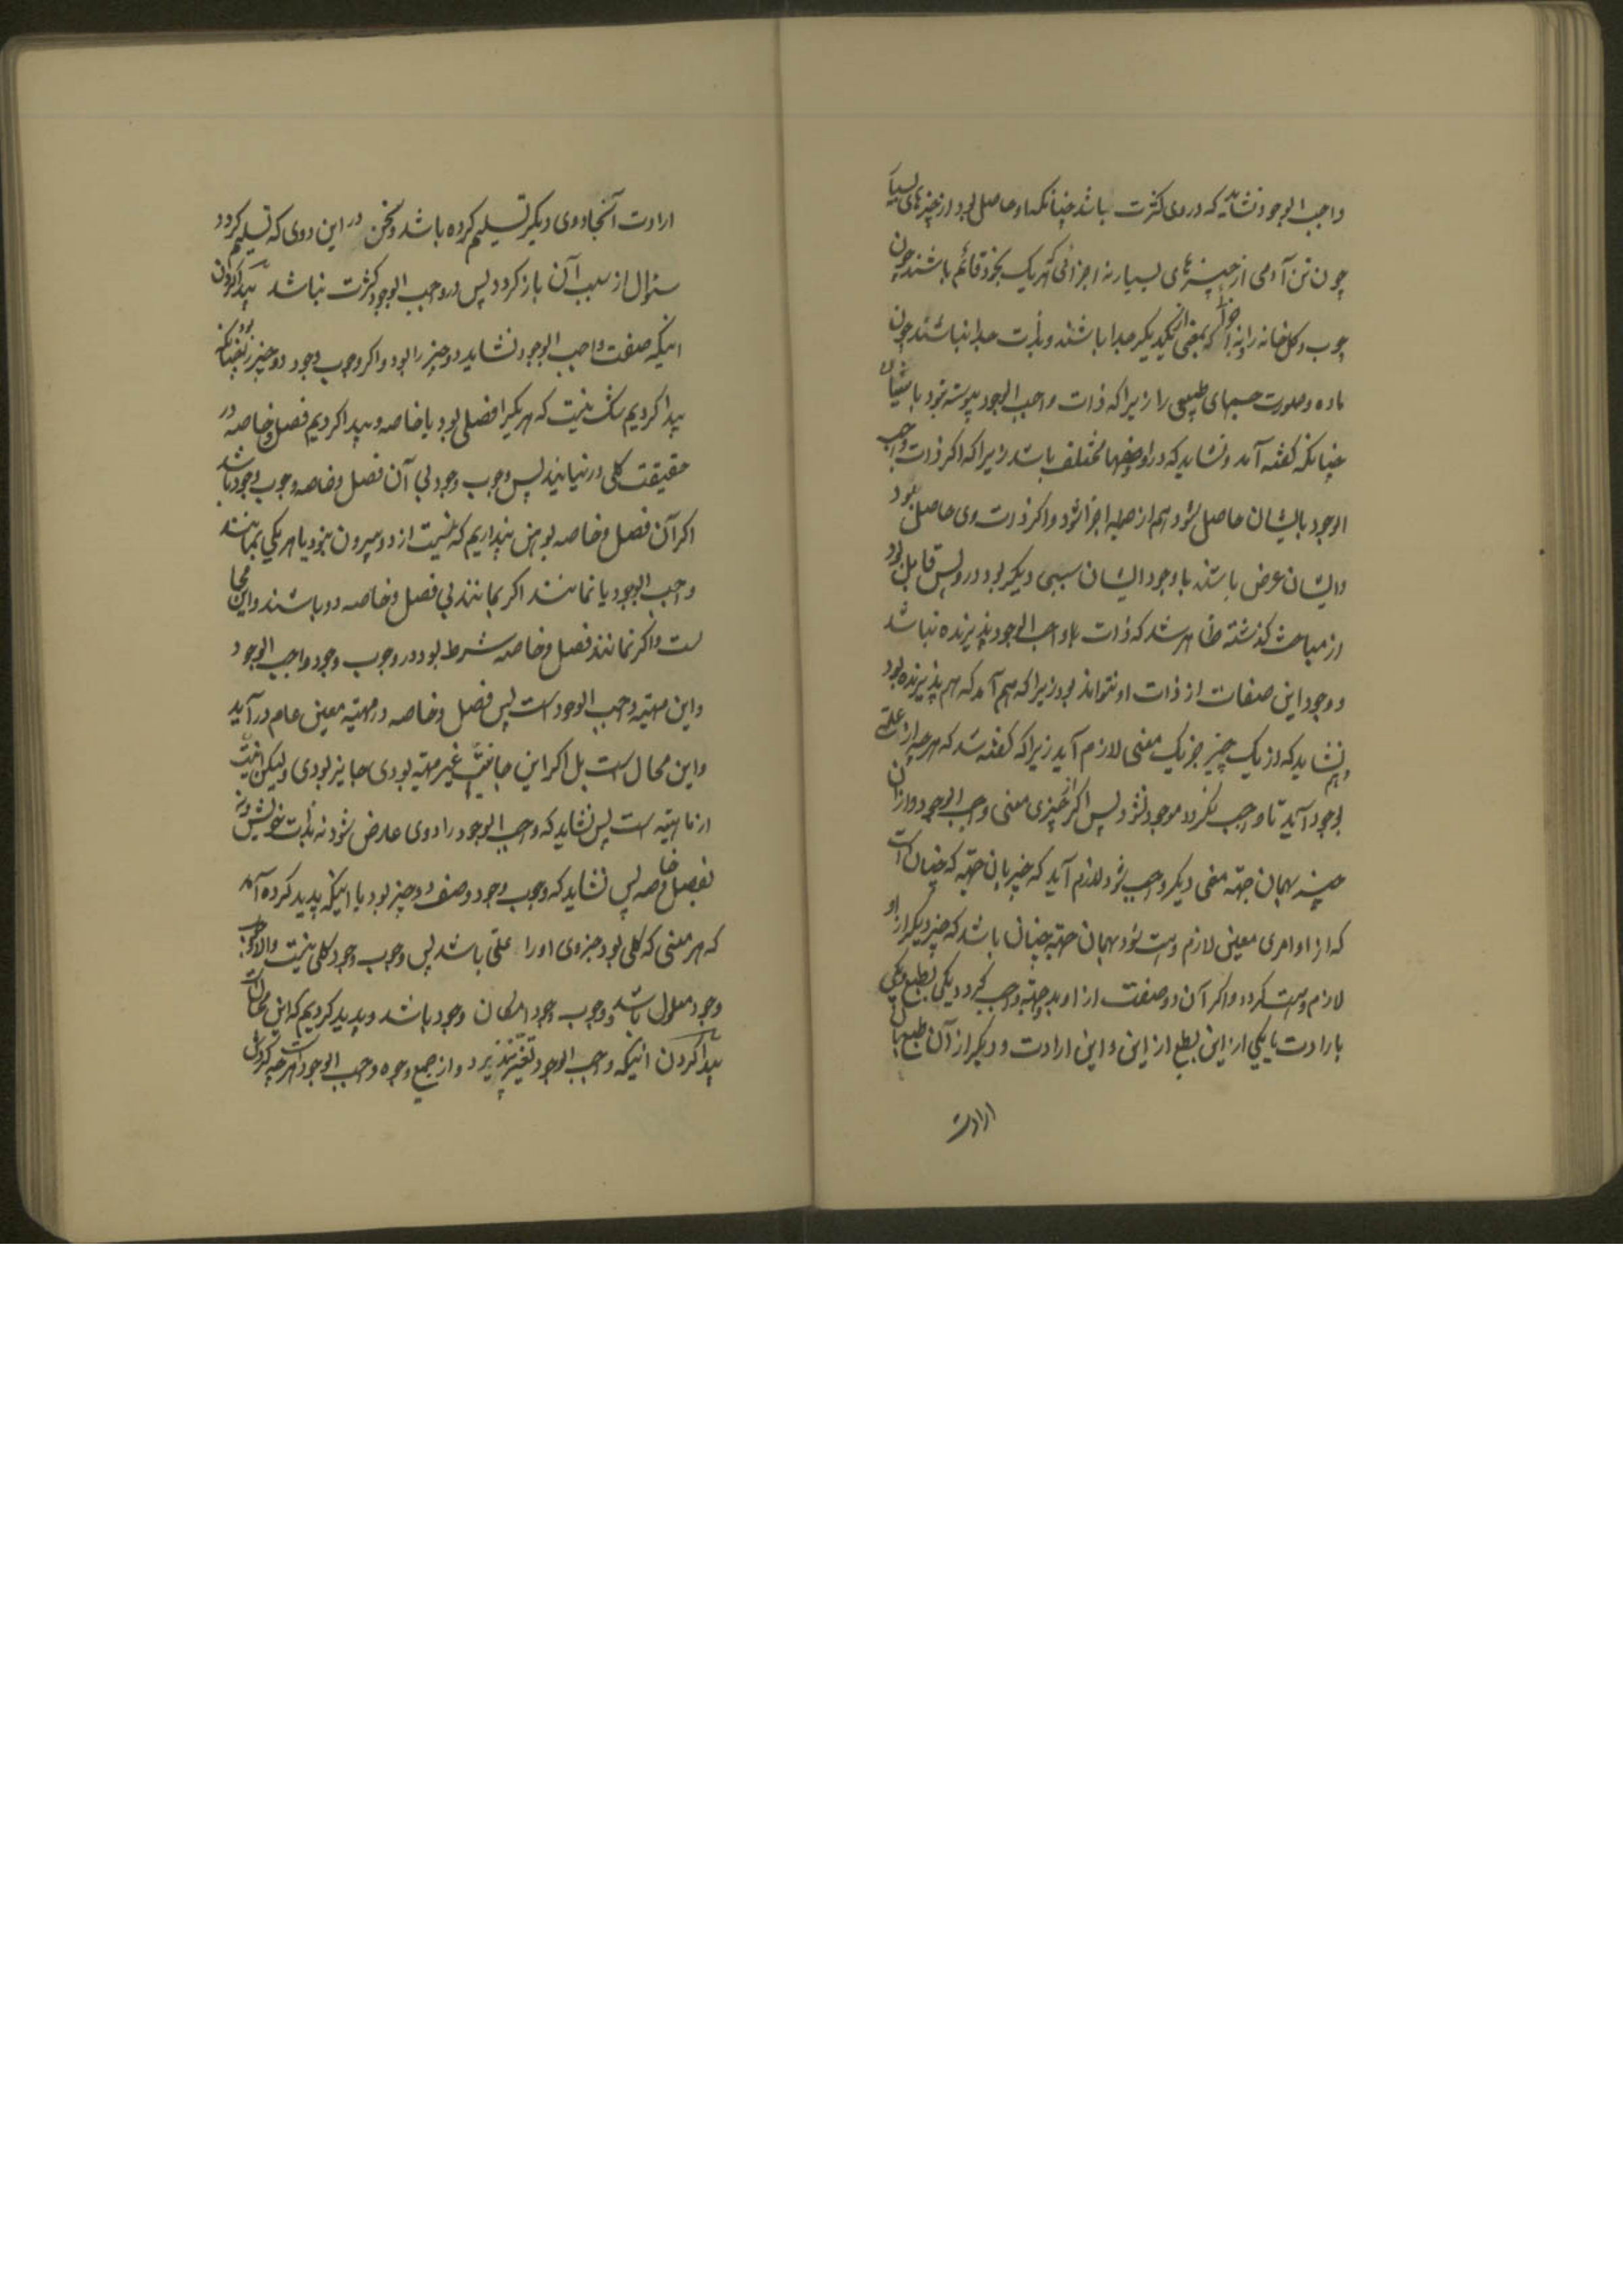 واجب الوجود نشاید که در وی کثرت باشد چنانکه او حاصل بود از چیزهای بسیار
چون تن آدمی از چیزهای بسیار نه اجزائی که هر یک بخود قائم باشند چون
چوب و کل خانه را و نه اجزا که بمعنی از یکدیکر جدا باشند و بذات جدا نباشند چون
ماده و صورت جسمهای طبیعی را زیرا که ذات واجب الوجود پیوسته بود باشیان
چنانکه کفته آمد و نشاید که در او صفتها مختلف باشد زیرا که اکر ذات واجب
الوجود بایشان حاصل شود هم از جمله اجزا شود و اکر ذات وی حاصل بود
و ایشان عرض باشند با وجود ایشان سببی دیکر بود در و پس قابل بود
از مباحث کذشته ظاهر شد که ذات واجب الوجود پذیرنده نباشد
و وجود این صفات از ذات او نتواند بود زیرا که هم آمد که هم پذیرنده بود
و هم نشاید که از یک چیز جز یک معنی لازم آید زیرا که کفته شد که هر چه از علتی
بوجود آید تا واجب نکردد موجود نشود پس اکر از چیزی معنی واجب الوجود و از آن
چیز بهمان جهة معنی دیکر واجب شود لازم آید که چیز بان جهة که چنان است
که از او امری معین لازم و است شود بهمان جهة چنان باشد که چیز دیکر از او
لازم و است کردد و اکر آن دو صفت از او بدو جهة واجب کردد یکی بطبع و یکی
بارادت یا یکی از این بطبع از این و این ارادت و دیکر از آن طبع یا
ارادت
ارادت آنجا دوی دیکر تسلیم کرده باشد و سخن در این دوی که تسلیم کردد
سئوال از سبب آن باز کردد پس در واجب الوجود کثرت نباشد پیدا کردن
اینکه صفت واجب الوجود نشاید دو چیز را بود و اکر وجوب وجود دو چیز را بود چنانکه
پیدا کردیم شک نیست که هر یکی را فصلی بود یا خاصه و پیدا کردیم فصل و خاصه در
حقیقت کلی در نیایند پس وجوب وجود بی آن فصل و خاصه وجوب وجود باشد
اکر آن فصل و خاصه بوهن پنداریم که نیست از دو بیرون نبود یا هر یکی بمانند
واجب الوجود یا نمانند اکر بمانند بی فصل و خاصه دو باشند و این محا
لست و اکر نمانند فصل و خاصه شرط بود در وجوب وجود واجب الوجود
و این مهیة واجب الوجود است پس فصل و خاصه در مهیة معین عام در آید
و این محال است بل اکر این جا انیت غیر مهیة بودی جایز بودی ولیکن انیت
از ماهیته است پس نشاید که واجب الوجود را دوی عارض شود نه بذات خویش و نه
بفصل و خاصه پس نشاید که وجوب وجود وصف دو چیز بود با اینکه پدید کرده آمد
که هر معنی که کلی بود و جزوی او را علتی باشد پس وجوب وجود کلی نیست والا وجوب
وجود معلول باشد و وجوب وجود امکان وجود باشد و پدید کردیم که این محال است
پیدا کردن اینکه واجب الوجود تغیر نپذیرد و از جمیع وجوه واجب الوجود است هر چه کردش